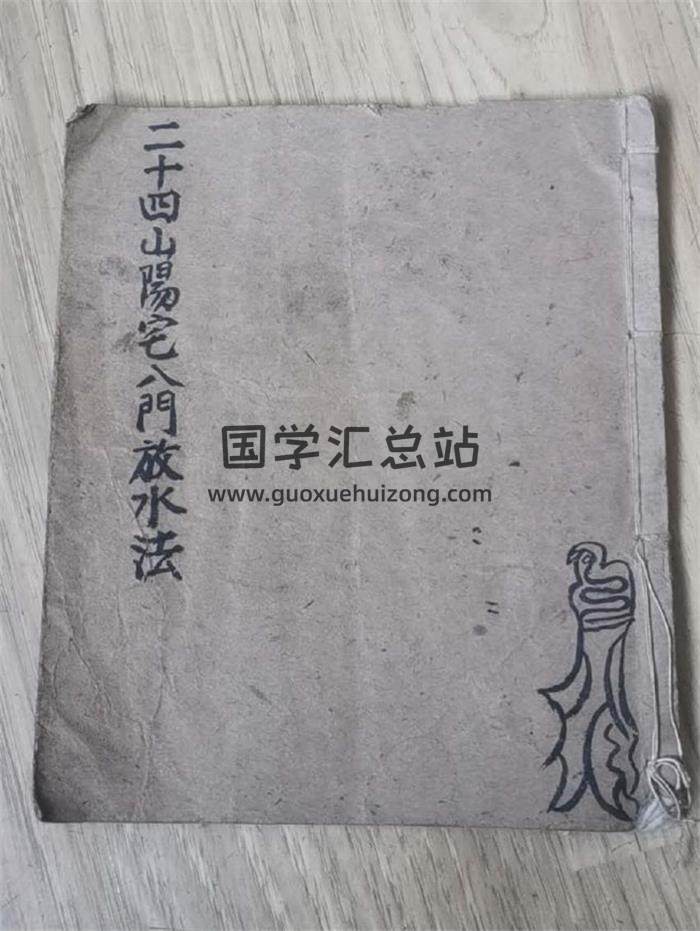 二十四山陽宅八門放水法
国学汇总站
www.guoxuehuizong.com